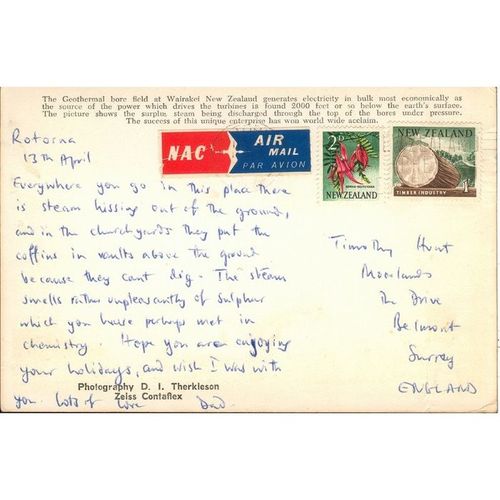 The Geothermal bore field at Wairakei New Zealand generates electricity in bulk most economically as
the source of the power which drives the turbines is found 2000 feet or so below the earth's surface.
The picture shows the surplus steam being discharged through the top of the bores under pressure.
The success of this unique enterprise has won world wide acclaim.
NAC
AIR
MAIL
PAR AVION
2D
NEW ZEALAND
NEW ZEALAND
TIMBER INDUSTRY
1
Rotorua
13th April
Everywhere you go in this place there
is steam hissing out of the ground,
and in the churchyards they put the
coffins in vaults above the ground
because they cant dig. The steam
smells rather unpleasantly of sulphur
which you have perhaps met in
chemistry. Hope you are enjoying
your holidays, and wish I was with
you. Lots of love Dad.
Timothy Hunt
Moorlands
The Drive
Belmont
Surrey
ENGLAND
Photography D. I. Therkleson
Zeiss Contaflex